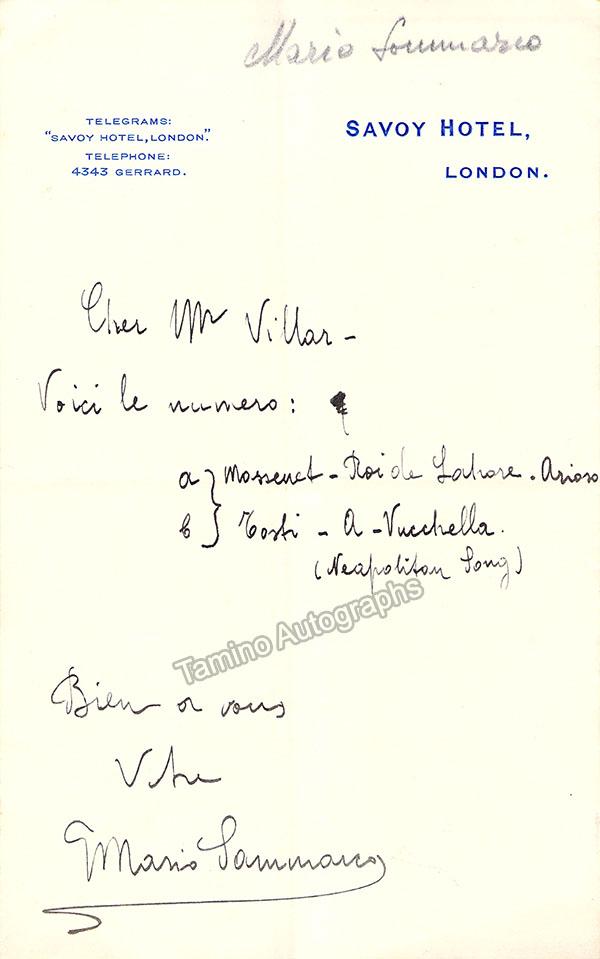 Mario Sammarco
TELEGRAMS:
"SAVOY HOTEL, LONDON."
TELEPHONE:
4343 GERRARD.
SAVOY HOTEL,
LONDON.
Cher Mr Villar -
Voici le numero :
a } Massenet - Roi de Lahore - Arioso
b } Tosti - A - Vucchella.
(Neapolitan Song)
Tamino Autographs
Bien a vous
Votre
GMario Sammarco